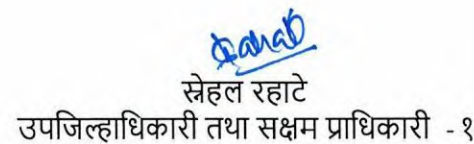 स्नेहल रहाटे
उपजिल्हाधिकारी तथा सक्षम प्राधिकारी - १